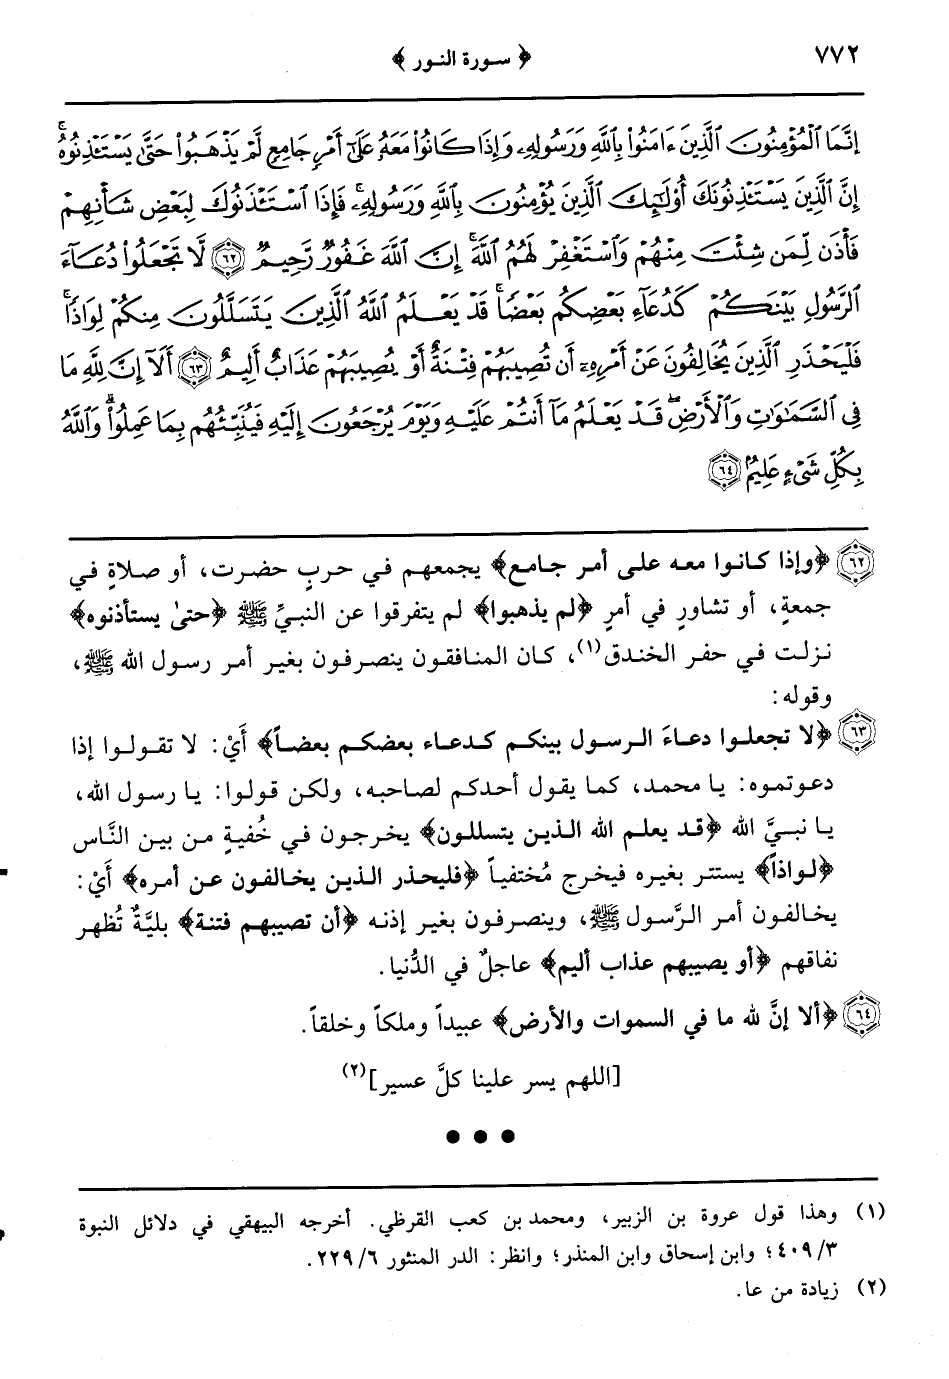 ٧٧٢
﴿ سورة النور ﴾
إِنَّمَا الْمُؤْمِنُونَ الَّذِينَ ءَامَنُوا۟ بِاللَّهِ وَرَسُولِهِۦ وَإِذَا كَانُوا۟ مَعَهُۥ عَلَىٰٓ أَمْرٍ جَامِعٍ لَّمْ يَذْهَبُوا۟ حَتَّىٰ يَسْتَـْٔذِنُوهُ ۚ
إِنَّ الَّذِينَ يَسْتَـْٔذِنُونَكَ أُو۟لَٰٓئِكَ الَّذِينَ يُؤْمِنُونَ بِاللَّهِ وَرَسُولِهِۦ ۚ فَإِذَا اسْتَـْٔذَنُوكَ لِبَعْضِ شَأْنِهِمْ
فَأْذَن لِّمَن شِئْتَ مِنْهُمْ وَاسْتَغْفِرْ لَهُمُ اللَّهَ ۚ إِنَّ اللَّهَ غَفُورٌ رَّحِيمٌ ﴿٦٢﴾ لَّا تَجْعَلُوا۟ دُعَآءَ
الرَّسُولِ بَيْنَكُمْ كَدُعَآءِ بَعْضِكُم بَعْضًا ۚ قَدْ يَعْلَمُ اللَّهُ الَّذِينَ يَتَسَلَّلُونَ مِنكُمْ لِوَاذًا ۚ
فَلْيَحْذَرِ الَّذِينَ يُخَالِفُونَ عَنْ أَمْرِهِۦٓ أَن تُصِيبَهُمْ فِتْنَةٌ أَوْ يُصِيبَهُمْ عَذَابٌ أَلِيمٌ ﴿٦٣﴾ أَلَآ إِنَّ لِلَّهِ مَا
فِى السَّمَٰوَٰتِ وَالْأَرْضِ ۖ قَدْ يَعْلَمُ مَآ أَنتُمْ عَلَيْهِ وَيَوْمَ يُرْجَعُونَ إِلَيْهِ فَيُنَبِّئُهُم بِمَا عَمِلُوا۟ ۗ وَاللَّهُ
بِكُلِّ شَىْءٍ عَلِيمٌۢ ﴿٦٤﴾
٦٢ ﴿وإذا كانوا معه على أمر جامع﴾ يجمعهم في حربٍ حضرت، أو صلاةٍ في
جمعةٍ، أو تشاورٍ في أمرٍ ﴿لم يذهبوا﴾ لم يتفرقوا عن النبيِّ ﷺ ﴿حتىٰ يستأذنوه﴾
نزلت في حفر الخندق(١)، كان المنافقون ينصرفون بغير أمر رسول الله ﷺ،
وقوله:
٦٣ ﴿لا تجعلوا دعاءَ الرسول بينكم كدعاء بعضكم بعضاً﴾ أَيْ: لا تقولوا إذا
دعوتموه: يا محمد، كما يقول أحدكم لصاحبه، ولكن قولوا: يا رسول الله،
يا نبيَّ الله ﴿قد يعلم الله الذين يتسللون﴾ يخرجون في خُفيةٍ من بين النَّاس
﴿لواذاً﴾ يستتر بغيره فيخرج مُختفياً ﴿فليحذر الذين يخالفون عن أمره﴾ أَيْ:
يخالفون أمر الرَّسول ﷺ، وينصرفون بغير إذنه ﴿أن تصيبهم فتنة﴾ بليَّةٌ تُظهر
نفاقهم ﴿أو يصيبهم عذاب أليم﴾ عاجلٌ في الدُّنيا.
٦٤ ﴿ألا إنَّ لله ما في السموات والأرض﴾ عبيداً وملكاً وخلقاً.
[اللهم يسر علينا كلَّ عسير](٢)
● ● ●
(١) وهذا قول عروة بن الزبير، ومحمد بن كعب القرظي. أخرجه البيهقي في دلائل النبوة
٣/ ٤٠٩؛ وابن إسحاق وابن المنذر؛ وانظر: الدر المنثور ٦/ ٢٢٩.
(٢) زيادة من عا.